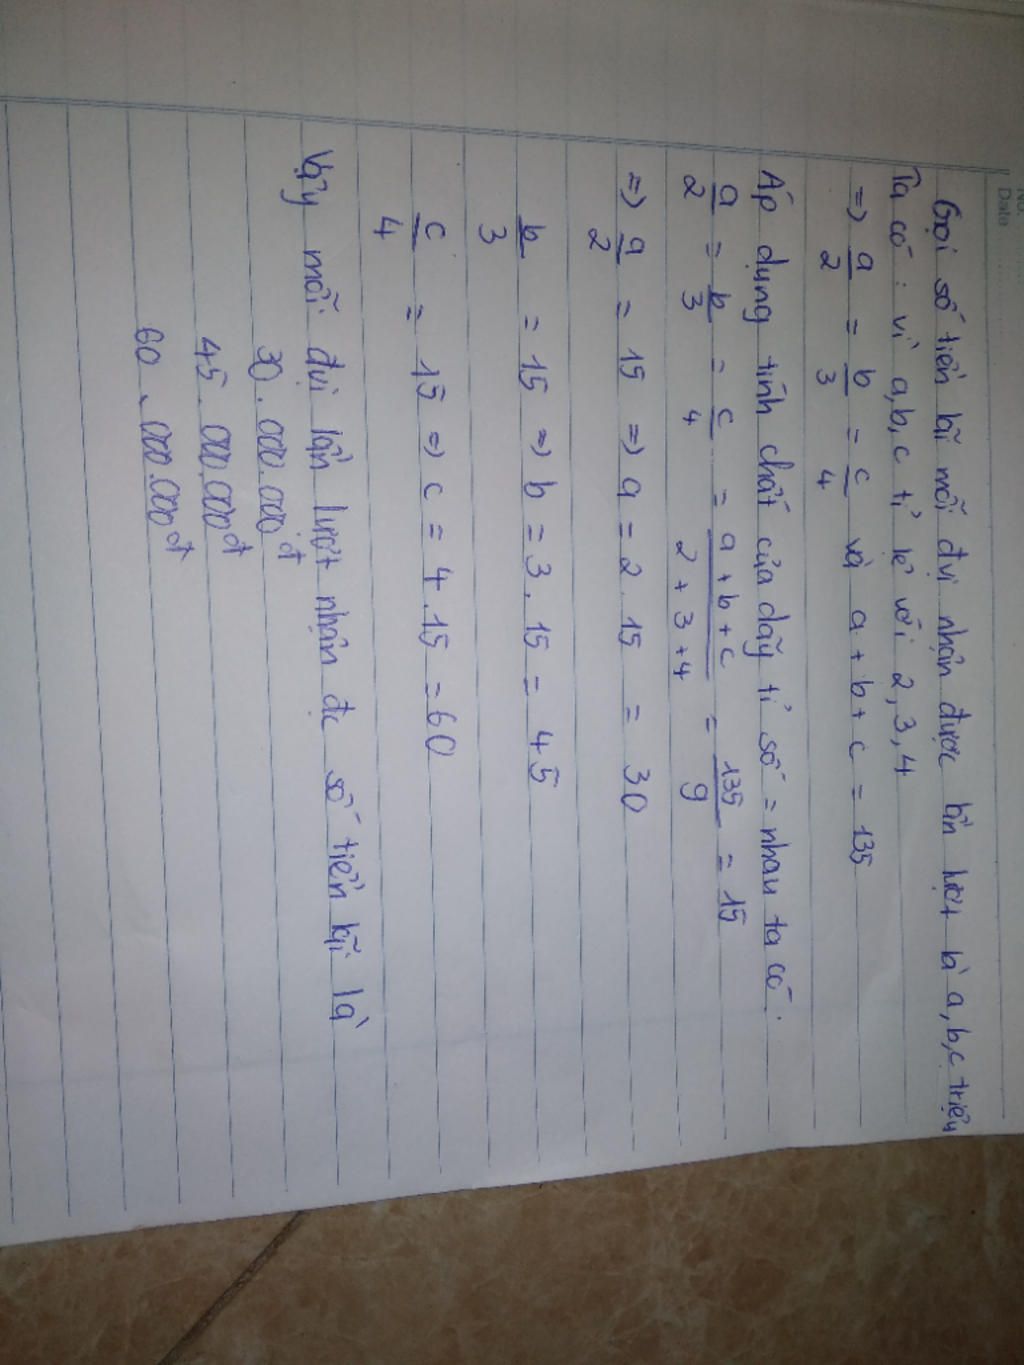 No.
Date
Gọi số tiền lãi mỗi đvị nhận được lần lượt là a,b,c triệu
Ta có : vì a,b,c tỉ lệ với 2,3,4
=> a/2 = b/3 = c/4 và a + b + c = 135
Áp dụng tính chất của dãy tỉ số = nhau ta có.
a/2 = b/3 = c/4 = (a+b+c)/(2+3+4) = 135/9 = 15
=> a/2 = 15 => a = 2.15 = 30
b/3 = 15 => b = 3.15 = 45
c/4 = 15 => c = 4.15 = 60
Vậy mỗi đvị lần lượt nhận đc số tiền lãi là
30.000.000đ
45.000.000đ
60.000.000đ